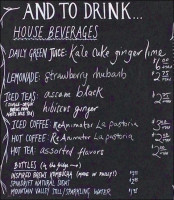 AND TO DRINK...
HOUSE BEVERAGES
DAILY GREEN JUICE: kale cuke ginger lime
6
LEMONADE: strawberry rhubarb
2.75
ICED TEAS: assam black
2.75
hibiscus ginger
ICED COFFEE: ReAnimator La pastoria
HOT COFFEE: ReAnimator La pastoria
HOT TEA: assorted flavors
BOTTLES (in the fridge →)
INSPIRED BREWS KOMBUCHA (made in philly!)
SPINDRIFT NATURAL SODAS
MOUNTAIN VALLEY STILL/SPARKLING WATER